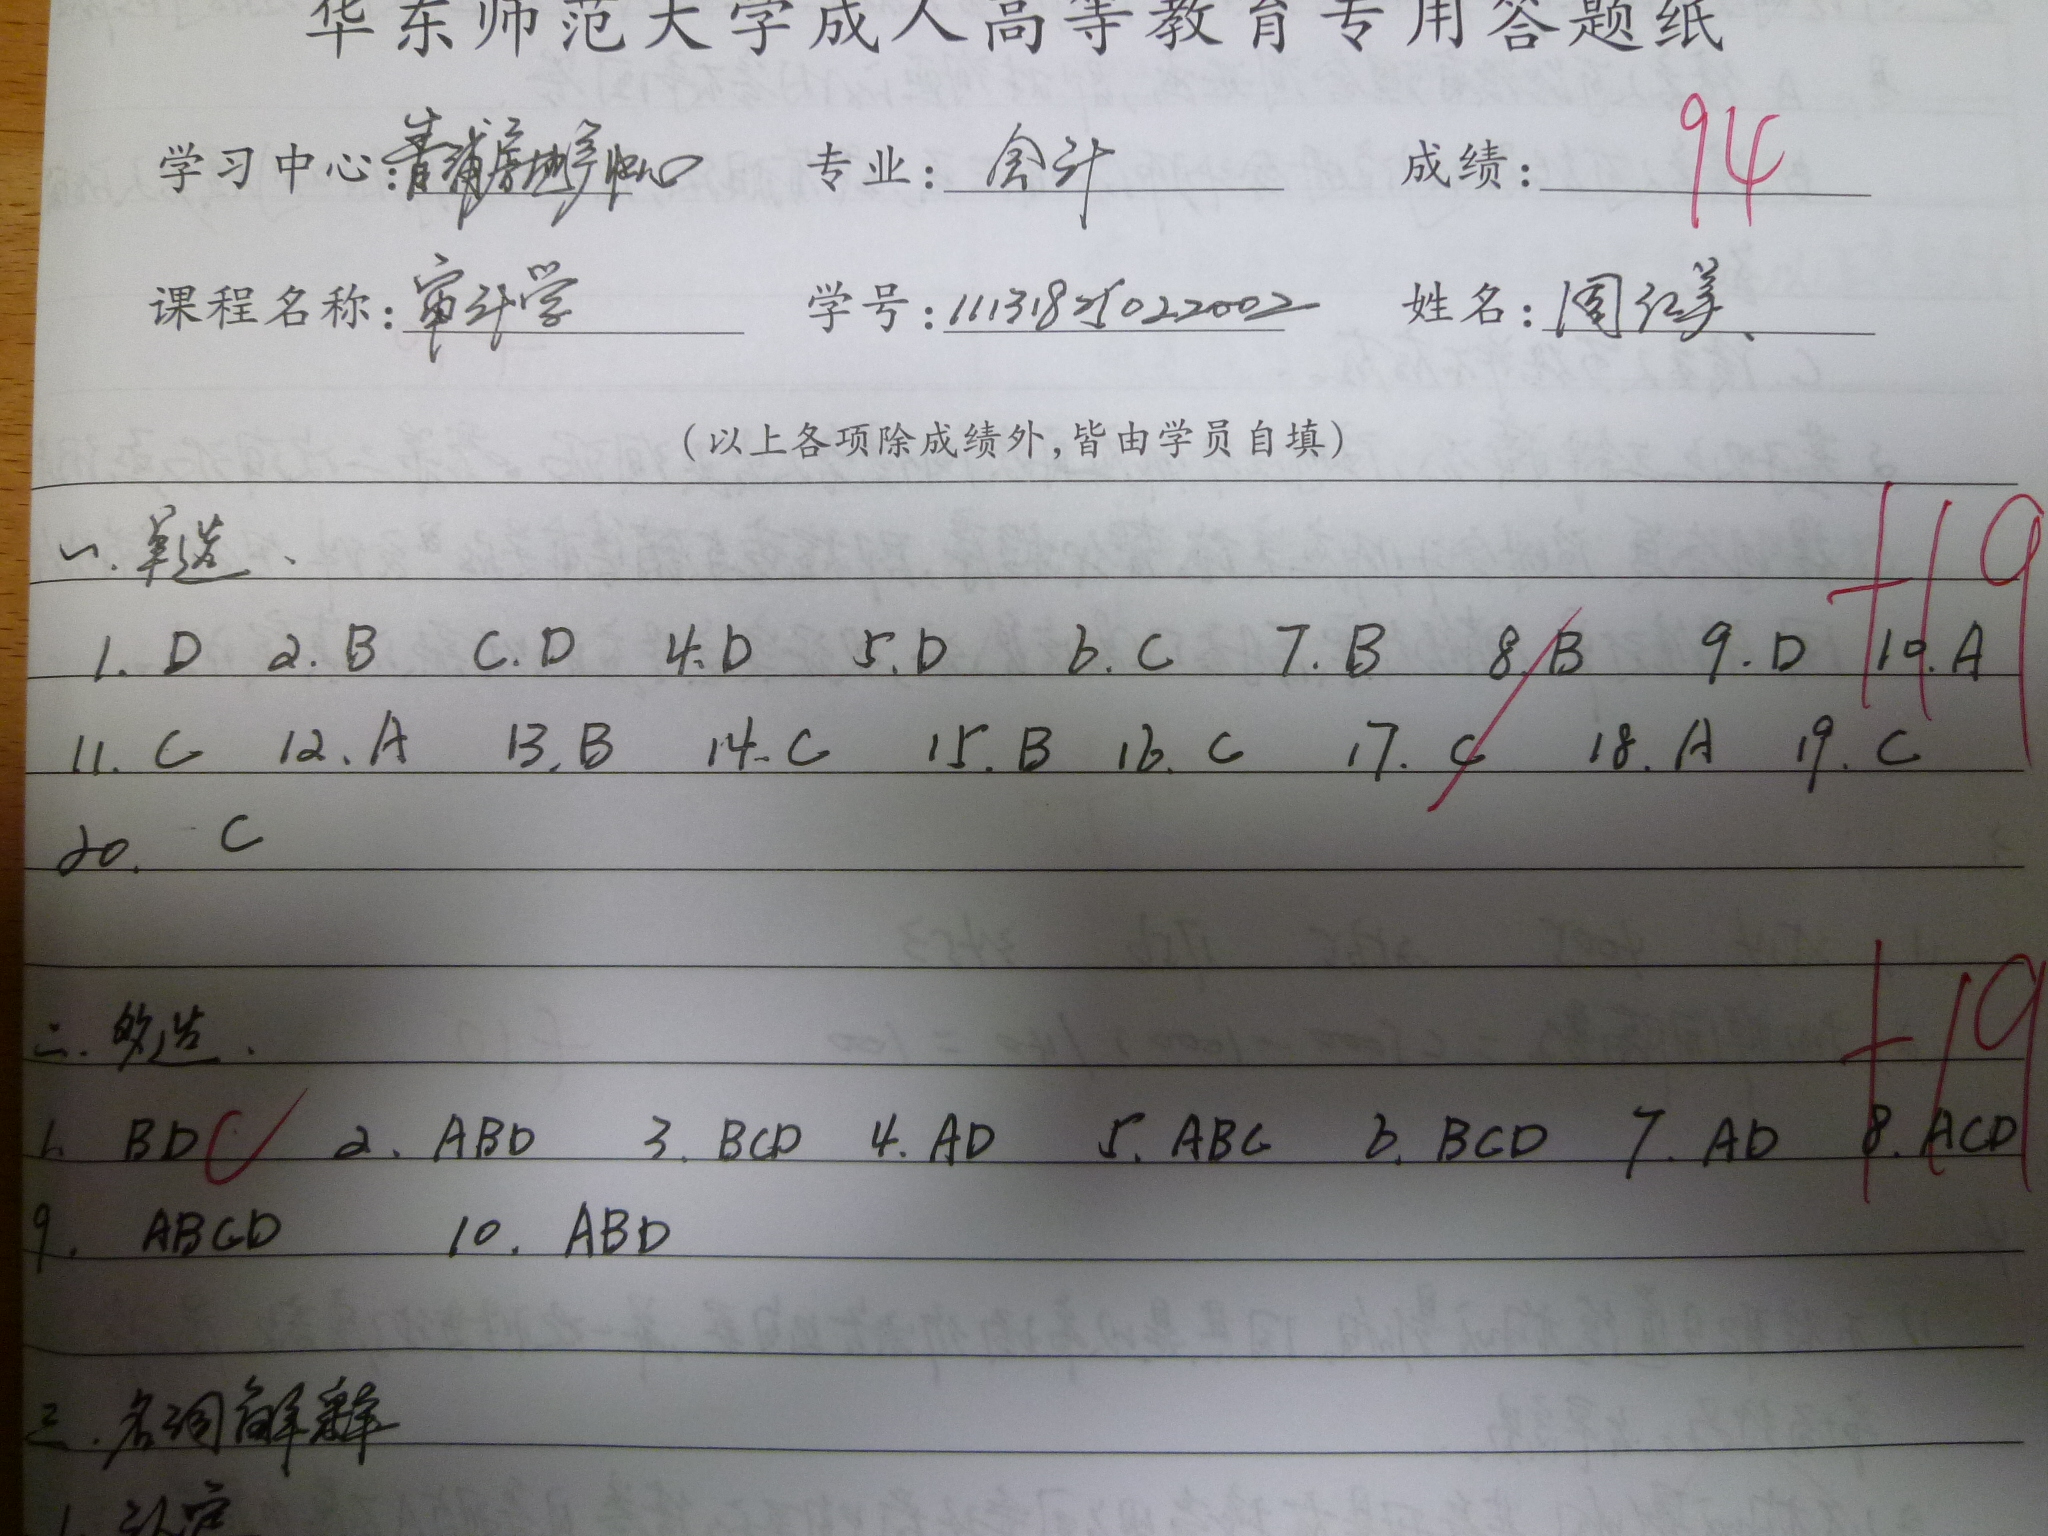 华东师范大学成人高等教育专用答题纸
学习中心:青浦 专业:会计 成绩:94
课程名称:审计学 学号:11131825022002 姓名:周红美
(以上各项除成绩外,皆由学员自填)
一.单选、 +19
1. D 2. B C. D 4. D 5. D 6. C 7. B 8. B 9. D 10. A
11. C 12. A 13. B 14. C 15. B 16. C 17. C 18. A 19. C
20. C
二.多选、 +19
1. BDC 2. ABD 3. BCD 4. AD 5. ABC 6. BCD 7. AD 8. ACD
9. ABCD 10. ABD
三.名词解释
1.认定